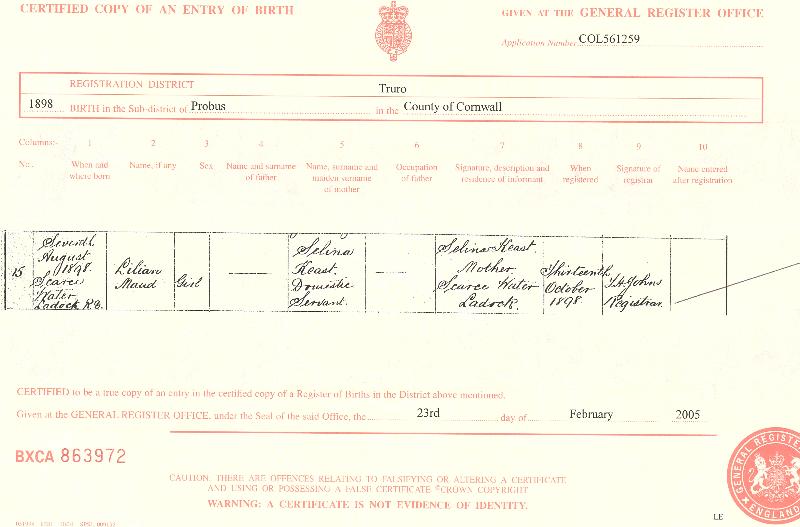 CERTIFIED COPY OF AN ENTRY OF BIRTH
GIVEN AT THE GENERAL REGISTER OFFICE
Application Number COL561259
REGISTRATION DISTRICT Truro
1898 BIRTH in the Sub-district of Probus in the County of Cornwall
Columns:- 1 2 3 4 5 6 7 8 9 10
No. When and where born Name, if any Sex Name and surname of father Name, surname and maiden surname of mother Occupation of father Signature, description and residence of informant When registered Signature of registrar Name entered after registration
15
Seventh
August
1898
Scarce
Water
Ladock R.D.
Lilian
Maud
Girl
Selina
Keast.
Domestic
Servant.
Selina Keast.
Mother
Scarce Water
Ladock.
Thirteenth
October
1898
Johns
Registrar.
CERTIFIED to be a true copy of an entry in the certified copy of a Register of Births in the District above mentioned.
Given at the GENERAL REGISTER OFFICE, under the Seal of the said Office, the 23rd day of February 2005
BXCA 863972
CAUTION: THERE ARE OFFENCES RELATING TO FALSIFYING OR ALTERING A CERTIFICATE
AND USING OR POSSESSING A FALSE CERTIFICATE ©CROWN COPYRIGHT
WARNING: A CERTIFICATE IS NOT EVIDENCE OF IDENTITY.
GENERAL REGISTER
ENGLAND
LE